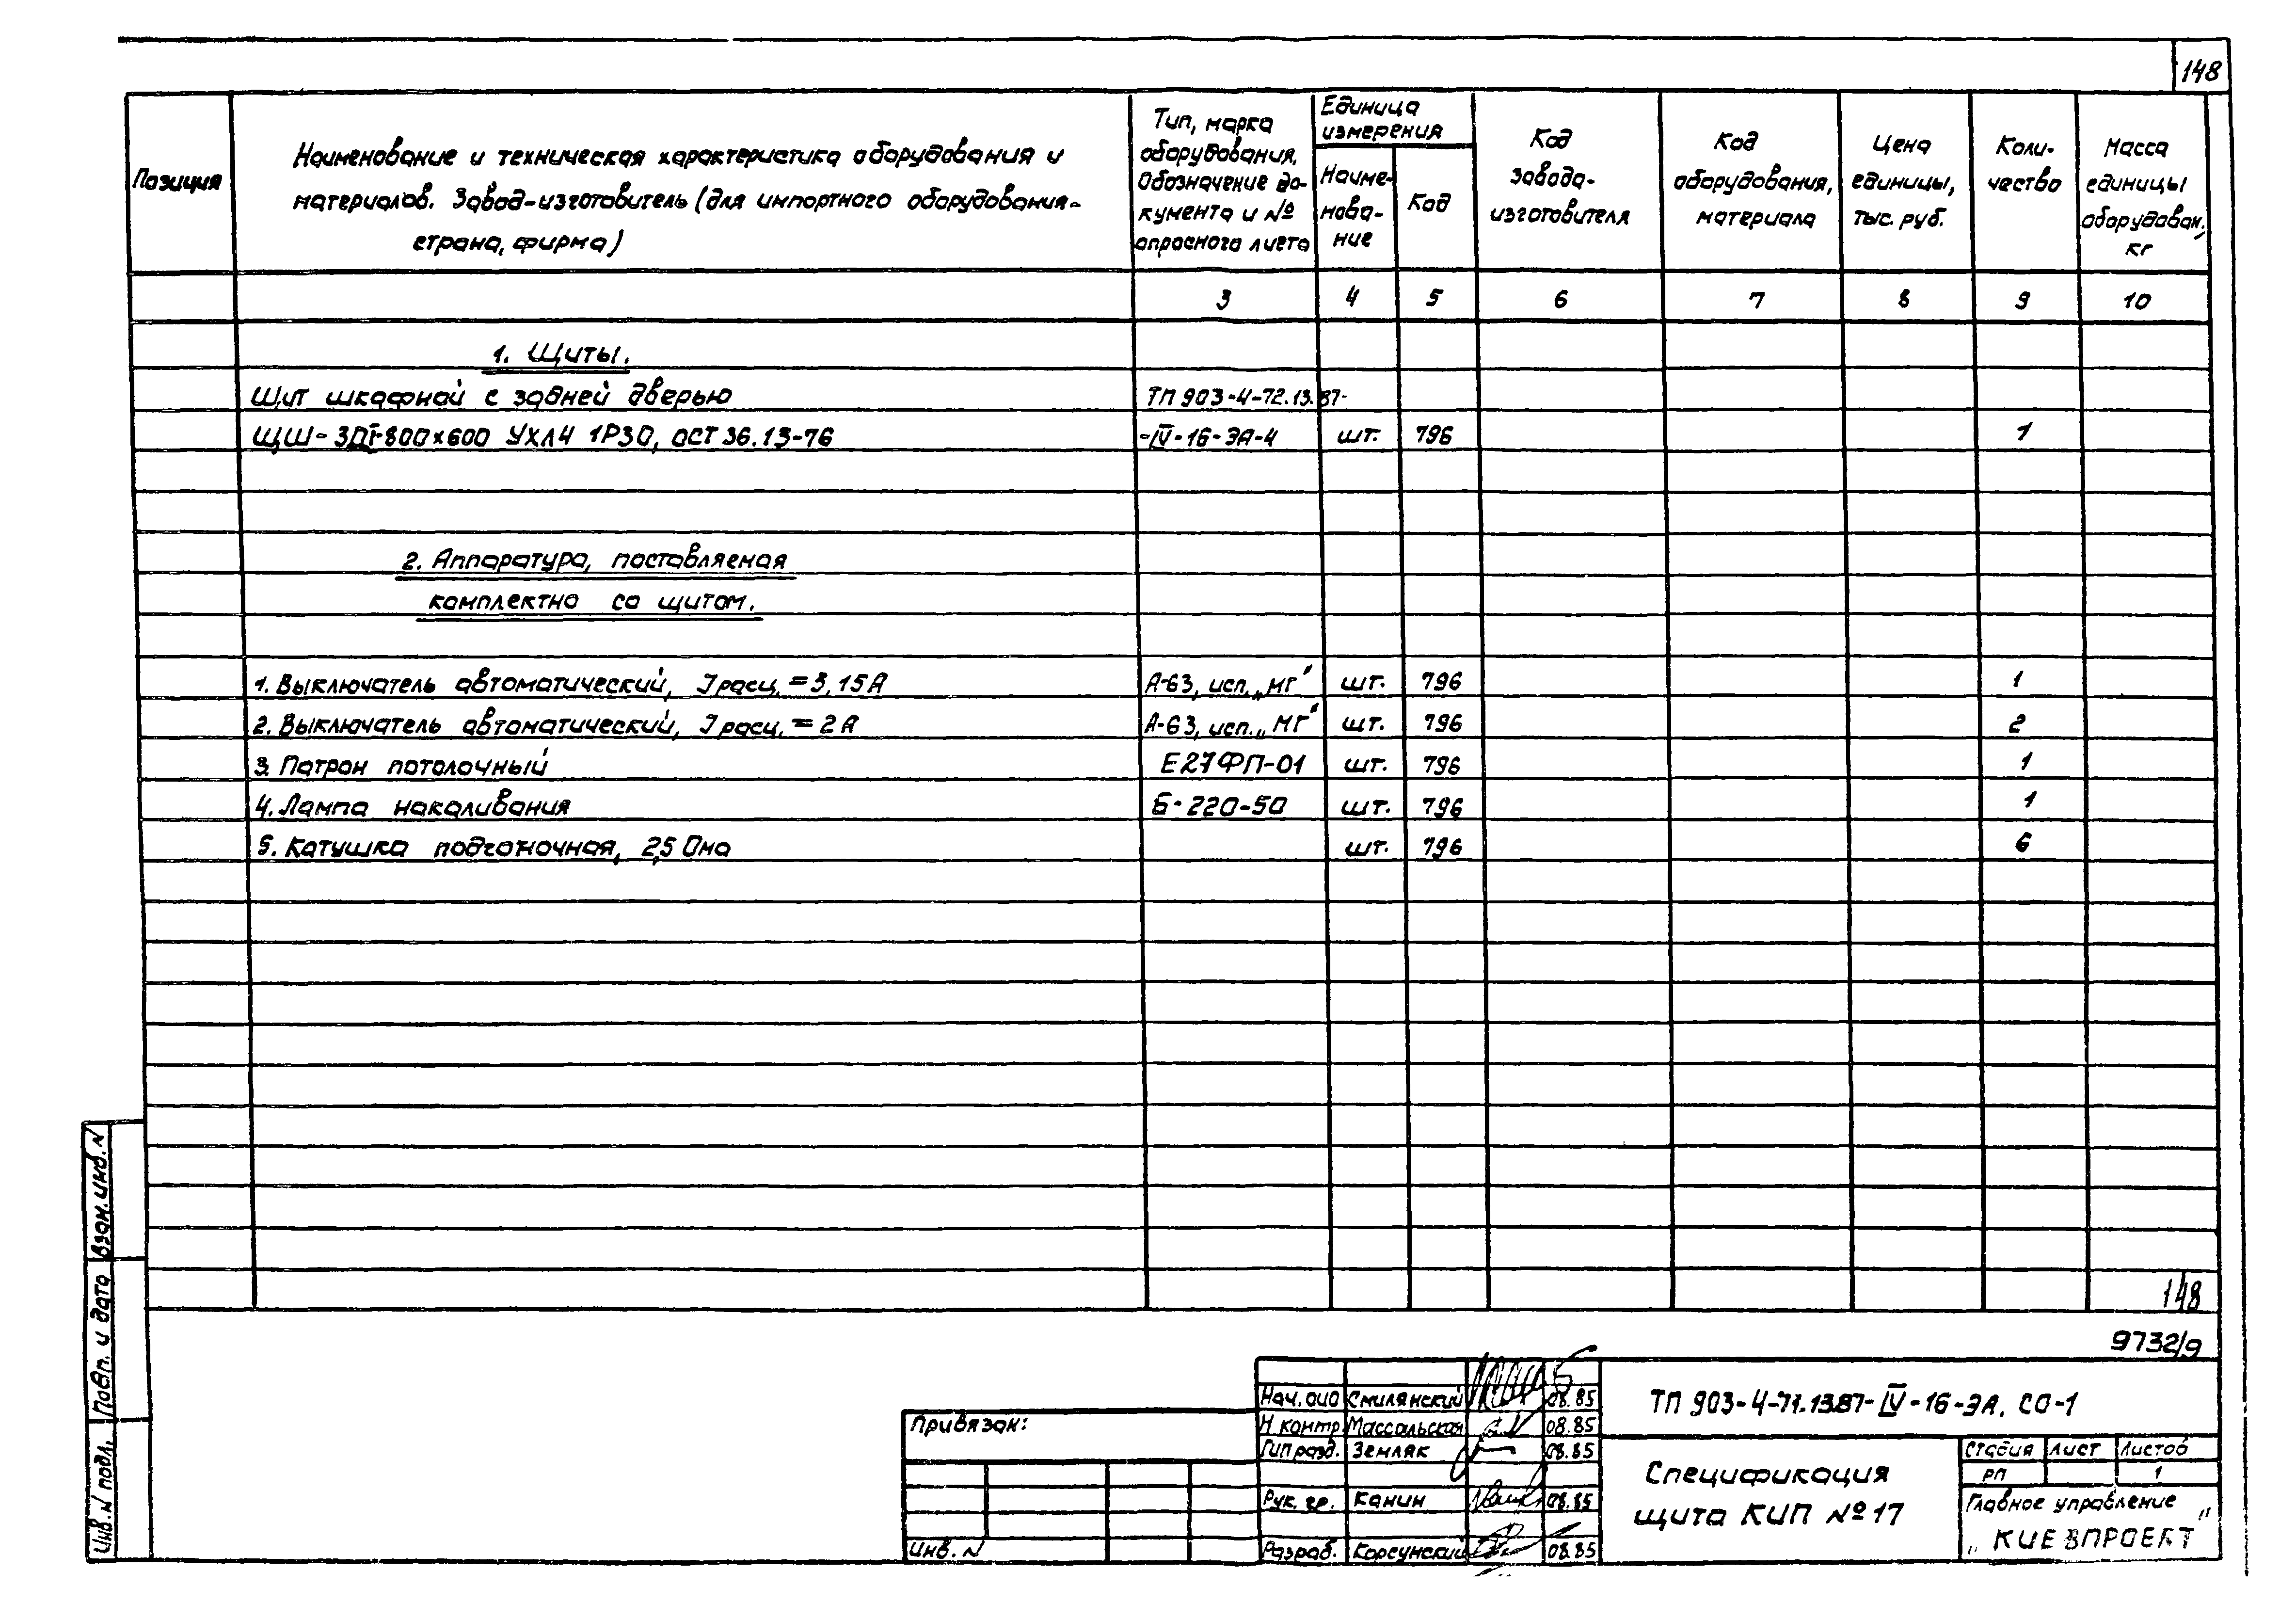 148
Позиция
Наименование и техническая характеристика оборудования и
материалов. Завод-изготовитель (для импортного оборудования-
страна, фирма)
Тип, марка
оборудования.
Обозначение до-
кумента и №
опросного листа
Единица
измерения
Наиме-
нова-
ние
Код
Код
завода-
изготовителя
Код
оборудования,
материала
Цена
единицы,
тыс. руб.
Коли-
чество
Масса
единицы
оборудован.,
кг
3 4 5 6 7 8 9 10
1. Щиты.
Щит шкафной с задней дверью ТП 903-4-72.13.87-
ЩШ-ЗДI-800×600 УХЛ4 1Р30, ОСТ 36.13-76 -IV-16-ЭА-4 шт. 796 1
2. Аппаратура, поставляемая
комплектно со щитом.
1. Выключатель автоматический, Iрасц. = 3,15А А-63, исп. „МГ" шт. 796 1
2. Выключатель автоматический, Iрасц. = 2А А-63, исп. „МГ" шт. 796 2
3. Патрон потолочный Е27ФП-01 шт. 796 1
4. Лампа накаливания Б-220-50 шт. 796 1
5. Катушка подгоночная, 2,5 Ома шт. 796 6
148
9732/9
Взам. инв. N
Подп. и дата
Инв. N подл.
Привязан:
Инв. N
Нач. ОИО Смилянский 08.85
Н контр Массальская 08.85
Гип разд. Земляк 08.85
Рук. гр. Канин 08.85
Разраб. Корсунский 08.85
ТП 903-4-71.13.87-IV-16-ЭА. СО-1
Спецификация
щита КИП №17
Стадия Лист Листов
РП 1
Главное управление
„КИЕВПРОЕКТ"